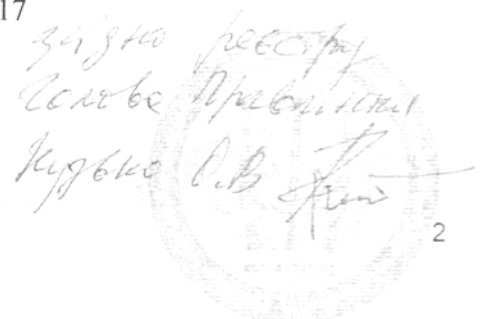 17
згідно реєстру
Голова Правління
Кузько О.В
2